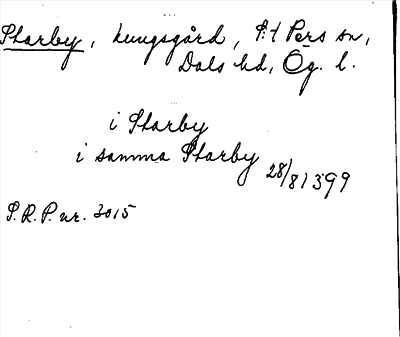 Starby, kungsgård, S:t Pers sn,
Dals hd, Ög. l.
i Starby
i samma Starby 28/8 1399
S.R.P. nr. 3015